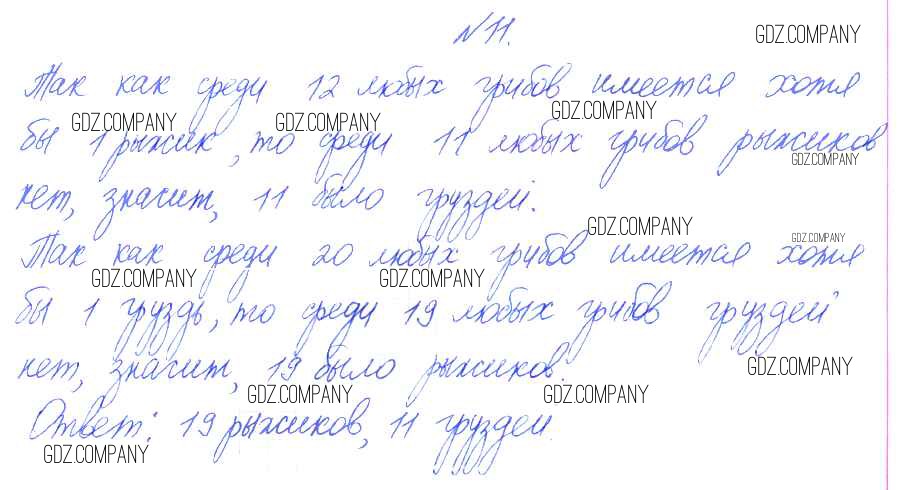 № 11.
GDZ.COMPANY
Так как среди 12 любых грибов имеется хотя
GDZ.COMPANY GDZ.COMPANY GDZ.COMPANY
бы 1 рыжик, то среди 11 любых грибов рыжиков
GDZ.COMPANY
нет, значит, 11 было груздей.
GDZ.COMPANY GDZ.COMPANY
Так как среди 20 любых грибов имеется хотя
GDZ.COMPANY GDZ.COMPANY
бы 1 груздь, то среди 19 любых грибов груздей
нет, значит, 19 было рыжиков.
GDZ.COMPANY
GDZ.COMPANY GDZ.COMPANY
Ответ: 19 рыжиков, 11 груздей.
GDZ.COMPANY